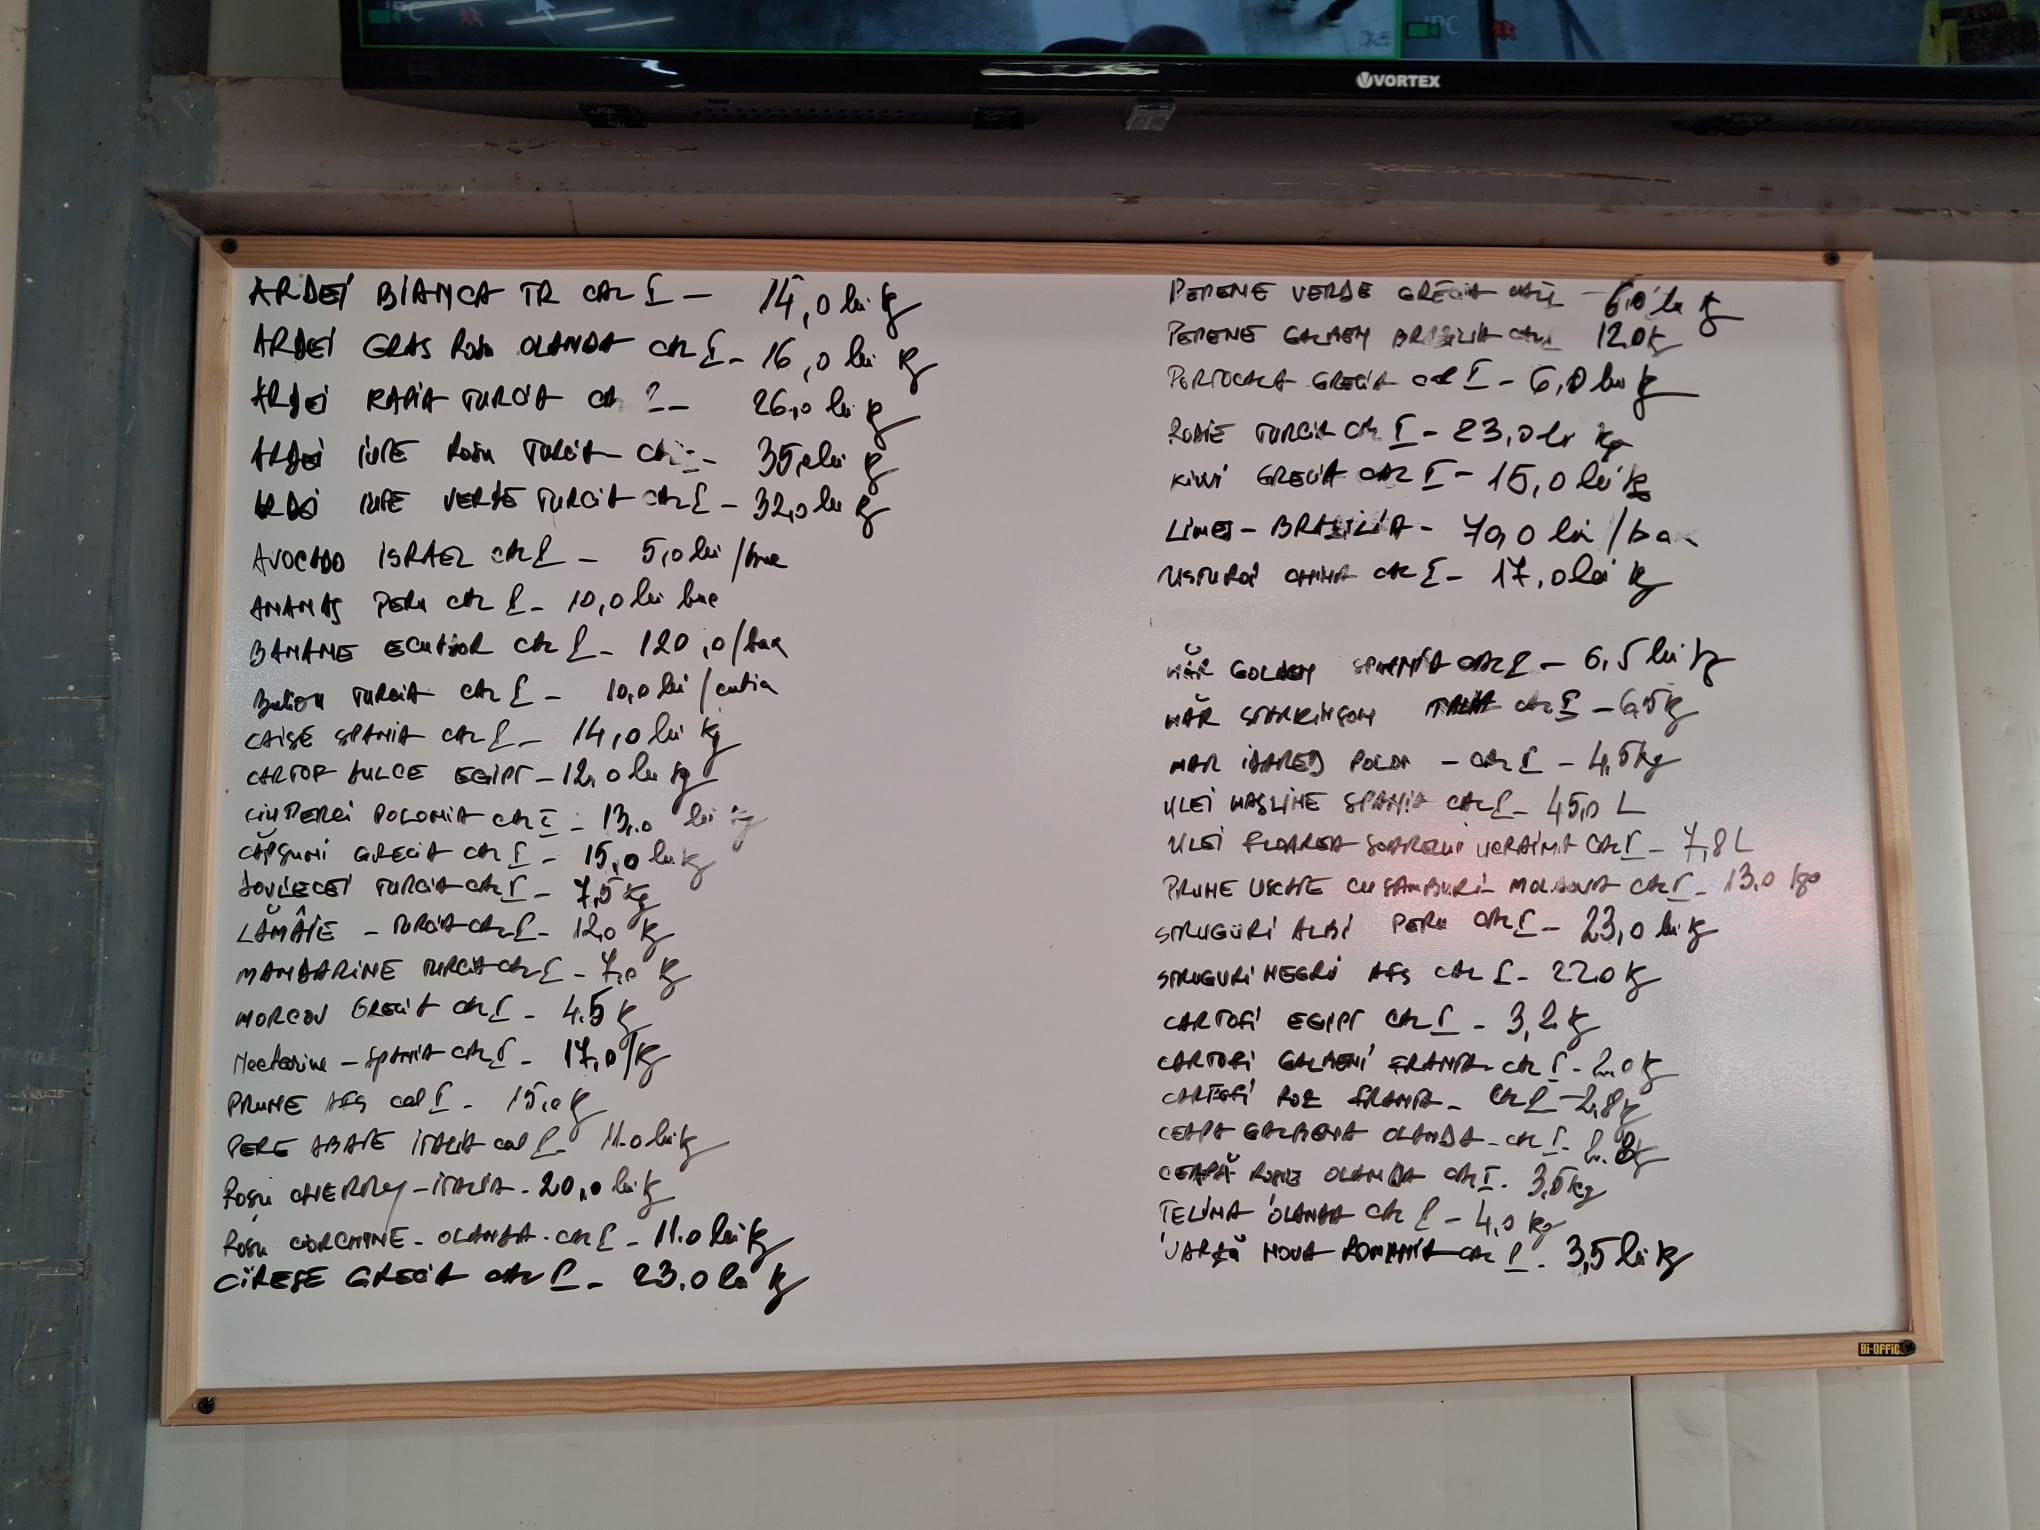 IPC
IPC
VORTEX
ARDEI BIANCA TR CAL I - 14,0 lei kg
ARDEI GRAS ROȘU OLANDA CAL I - 16,0 lei kg
ARDEI KAPIA TURCIA CAL I - 26,0 lei kg
ARDEI IUTE ROȘU TURCIA CAL I - 35,0 lei kg
ARDEI IUTE VERDE TURCIA CAL I - 32,0 lei kg
AVOCADO ISRAEL CAL I - 5,0 lei /buc
ANANAS PERU CAL I - 10,0 lei buc
BANANE ECUADOR CAL I - 120,0/bax
Bulion TURCIA CAL I - 10,0 lei /cutia
CAISE SPANIA CAL I - 14,0 lei kg
CARTOF DULCE EGIPT - 12,0 lei kg
CIUPERCI POLONIA CAL I - 13,0 lei kg
CĂPȘUNI GRECIA CAL I - 15,0 lei kg
DOVLECEI TURCIA CAL I - 7,5 kg
LĂMÂIE - TURCIA CAL I - 12,0 kg
MANDARINE TURCIA CAL I - 7,0 kg
MORCOV GRECIA CAL I - 4.5 kg
Nectarine - SPANIA CAL I - 17,0/kg
PRUNE AFS cal I - 15,0 kg
PERE ABATE ITALIA cal I - 11.0 lei kg
Roșii CHERRY - ITALIA - 20,0 lei kg
Roșii CIORCHINE - OLANDA - CAL I - 11.0 lei kg
CIREȘE GRECIA CAL I - 23.0 lei kg
PEPENE VERDE GRECIA CAL I - 6,0 lei kg
PEPENE GALBEN BRAZILIA CAL I 12.0 kg
PORTOCALA GRECIA cal I - 6,0 lei kg
RODIE TURCIA CAL I - 23,0 lei kg
KIWI GRECIA CAL I - 15,0 lei kg
LIMES - BRAZILIA - 70,0 lei /bax
USTUROI CHINA CAL I - 17,0 lei kg
MĂR GOLDEN SPANIA CAL I - 6,5 lei kg
MĂR STARKINSON ITALIA CAL I - 6,5 kg
MAR IDARED POLON - CAL I - 4,5 kg
ULEI MASLINE SPANIA CAL I - 45,0 L
ULEI FLOAREA SOARELUI UCRAINA CAL I - 7,8 L
PRUNE USCATE CU SAMBURI - MOLDOVA CAL I - 13.0 kg
STRUGURI ALBI PERU CAL I - 23,0 lei kg
STRUGURI NEGRI AFS CAL I - 22.0 kg
CARTOFI EGIPT CAL I - 3,2 kg
CARTOFI GALBENI FRANTA - CAL I - 2.0 kg
CARTOFI ROZ FRANTA - CAL I - 2,8 kg
CEAPA GALBENA OLANDA - CAL I - 2.8 kg
CEAPĂ ROȘIE OLANDA CAL I - 3,5 kg
TELINA OLANDA CAL I - 4,0 kg
VARZĂ NOUA ROMANIA CAL I - 3,5 lei kg
Bi-OFFICE